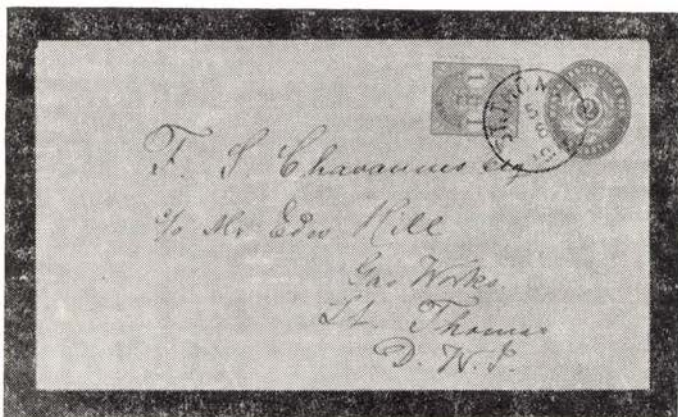 1
CENT
ST. THOMAS
F. S. Chavannes Esq
c/o Mr Edw Hill
Gas Works
St. Thomas
D. W. I.